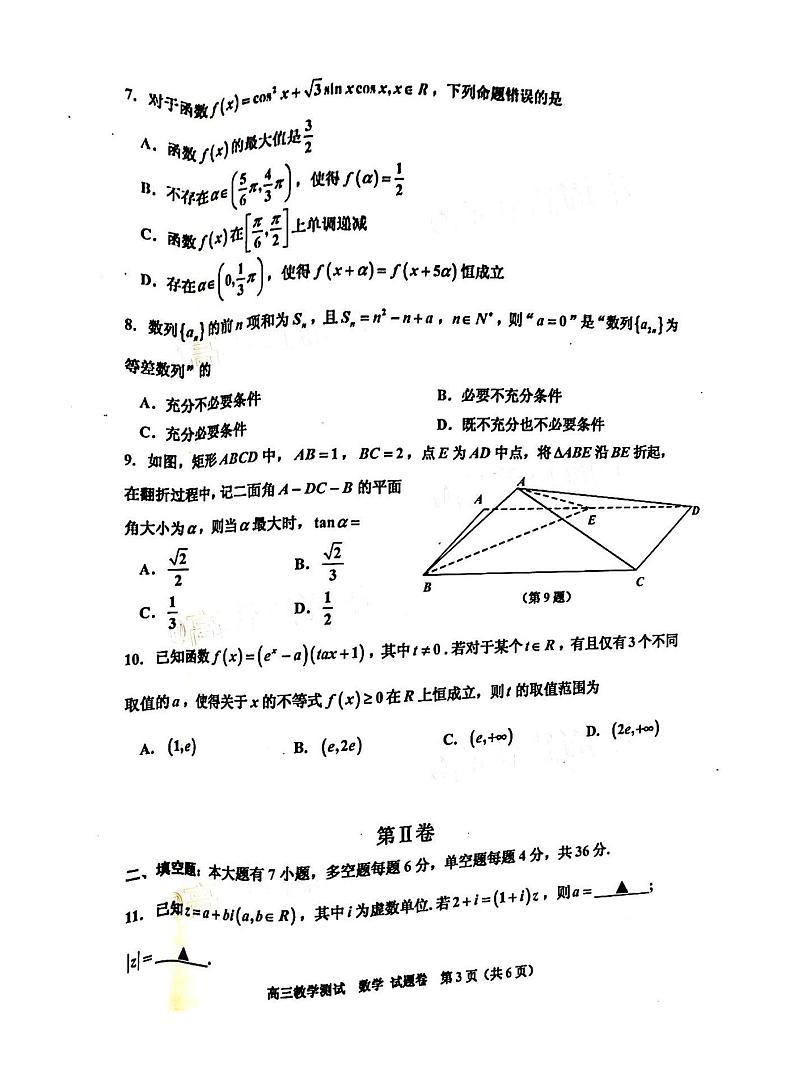 7. 对于函数 f(x)=cos²x+√3sinxcosx,x∈R，下列命题错误的是
A. 函数 f(x)的最大值是3/2
B. 不存在α∈(5/6π,4/3π)，使得f(α)=1/2
C. 函数f(x)在[π/6,π/2]上单调递减
D. 存在α∈(0,1/3π)，使得f(x+α)=f(x+5α)恒成立
8. 数列{aₙ}的前n项和为Sₙ，且Sₙ=n²−n+a，n∈N*，则“a=0”是“数列{a₂ₙ}为
等差数列”的
A. 充分不必要条件 B. 必要不充分条件
C. 充分必要条件 D. 既不充分也不必要条件
9. 如图，矩形ABCD中，AB=1，BC=2，点E为AD中点，将ΔABE沿BE折起，
在翻折过程中，记二面角A−DC−B的平面
角大小为α，则当α最大时，tanα=
A. √2/2 B. √2/3
C. 1/3 D. 1/2
A
A
E
D
B
C
(第9题)
10. 已知函数f(x)=(eˣ−a)(tax+1)，其中t≠0.若对于某个t∈R，有且仅有3个不同
取值的a，使得关于x的不等式f(x)≥0在R上恒成立，则t的取值范围为
A. (1,e) B. (e,2e) C. (e,+∞) D. (2e,+∞)
第Ⅱ卷
二、填空题：本大题有7小题，多空题每题6分，单空题每题4分，共36分.
11. 已知z=a+bi(a,b∈R)，其中i为虚数单位.若2+i=(1+i)z，则a=▲；
|z|=▲.
高三教学测试 数学 试题卷 第3页（共6页）